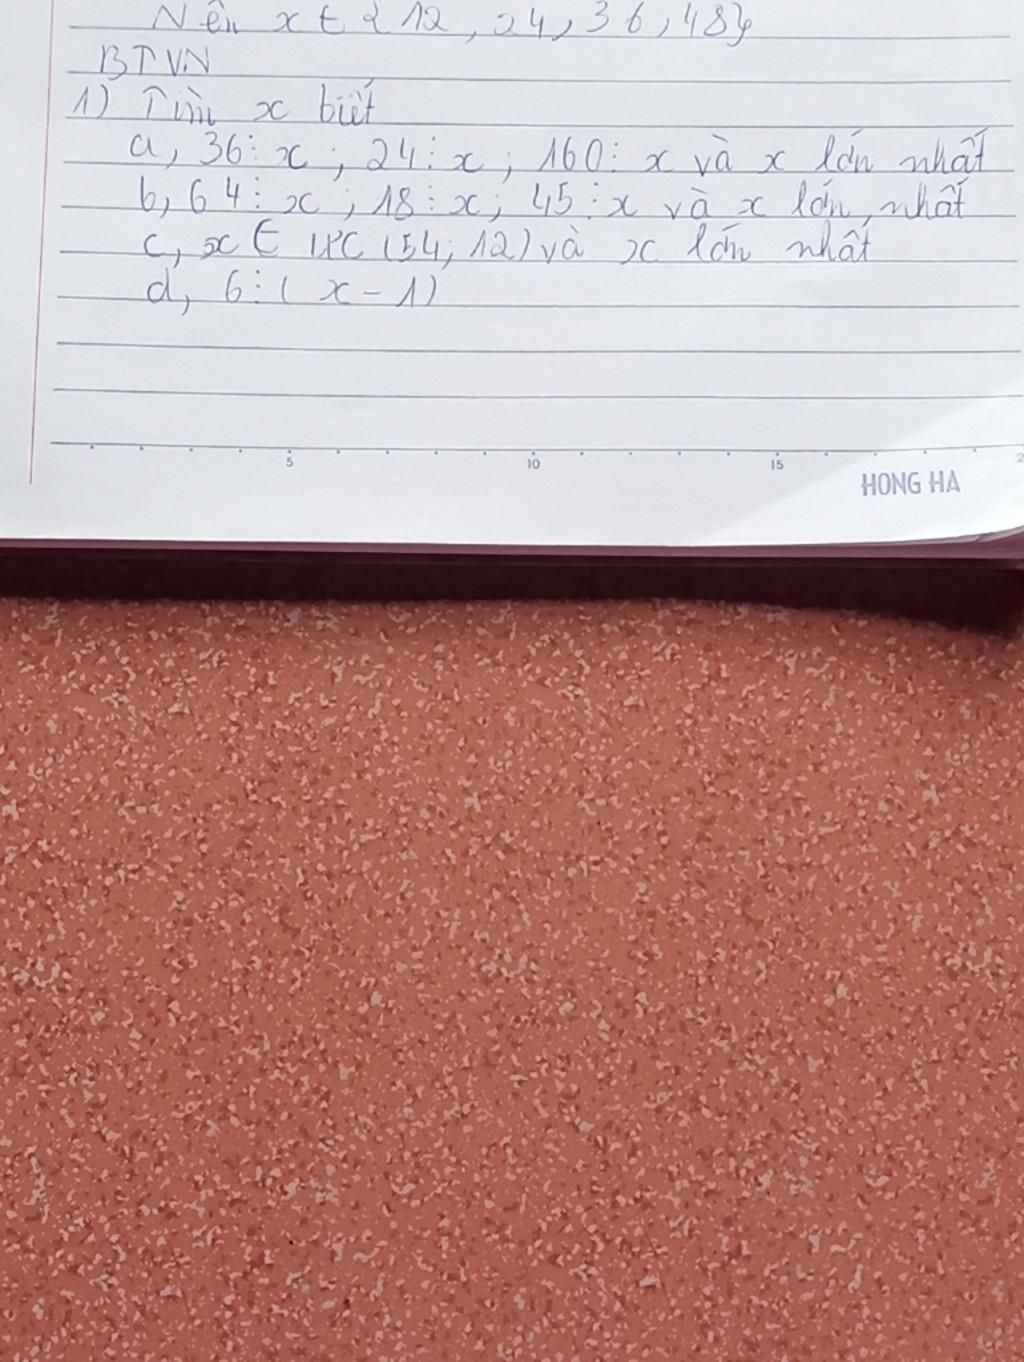 Nên x ∈ {12, 24, 36, 48}
BTVN
1) Tìm x biết
a, 36 ⋮ x ; 24 ⋮ x ; 160 ⋮ x và x lớn nhất
b, 64 ⋮ x ; 18 ⋮ x ; 45 ⋮ x và x lớn nhất
c, x ∈ ƯC (54; 12) và x lớn nhất
d, 6 ⋮ ( x - 1)
5 10 15 2
HONG HA